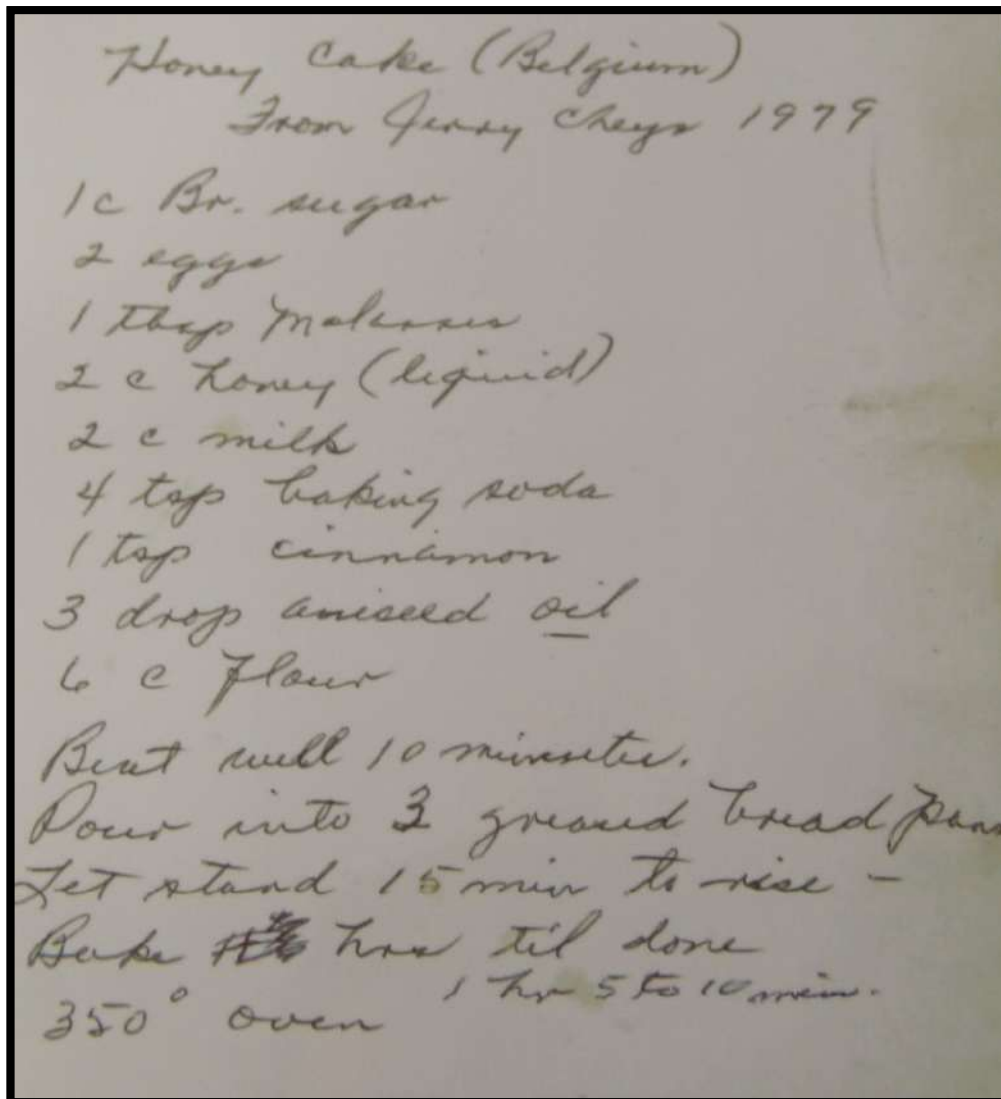 Honey Cake (Belgium)
From Jerry Cheys 1979
1 c Br. sugar
2 eggs
1 tbsp Molasses
2 c honey (liquid)
2 c milk
4 tsp baking soda
1 tsp cinnamon
3 drop aniseed oil
6 c Flour
Beat well 10 minutes.
Pour into 3 greased bread pans
Let stand 15 min to rise -
Bake hrs til done
1 hr 5 to 10 min.
350° oven